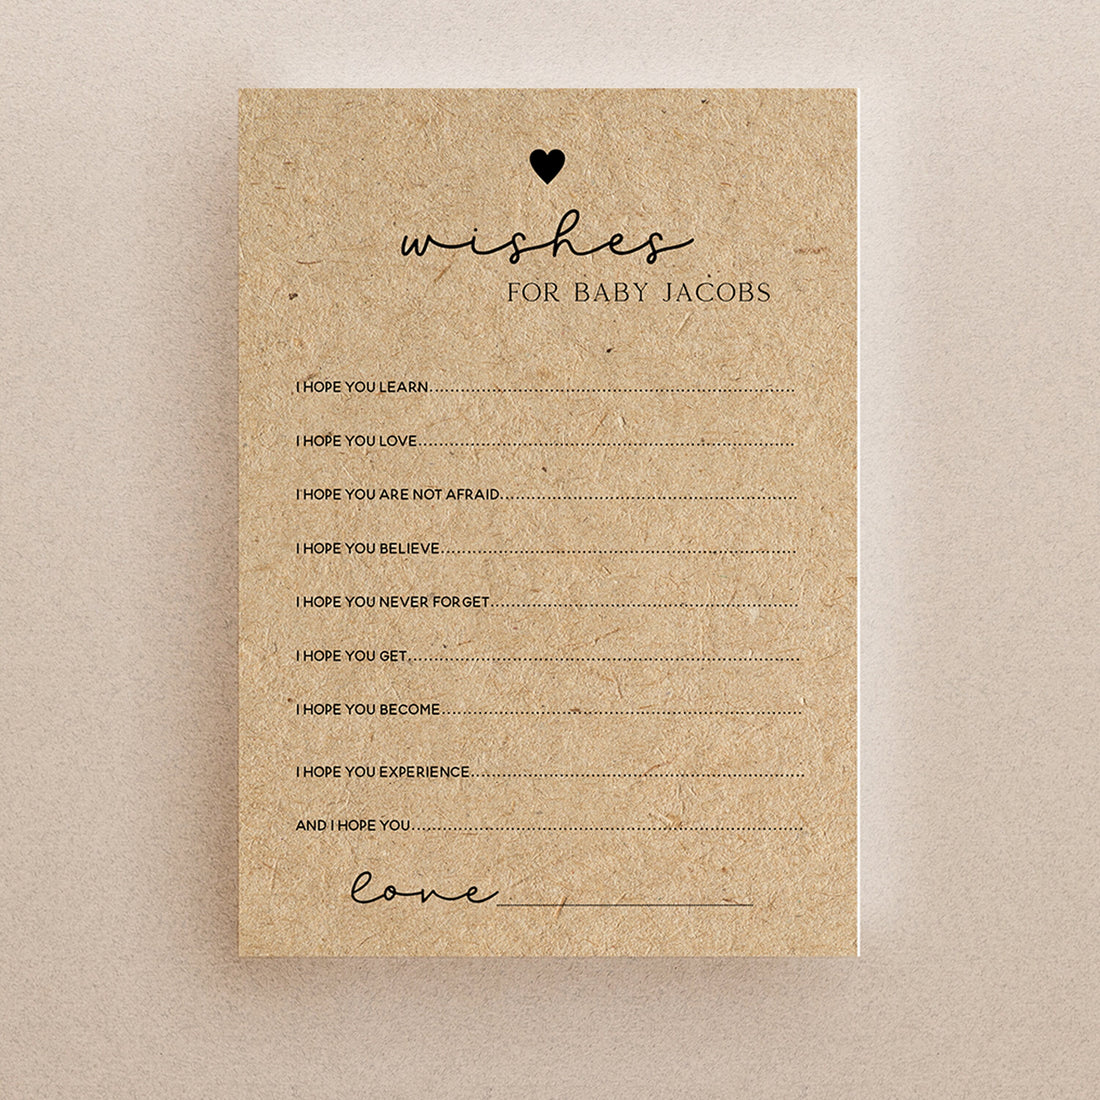 wishes
FOR BABY JACOBS
I HOPE YOU LEARN........................................................................
I HOPE YOU LOVE..........................................................................
I HOPE YOU ARE NOT AFRAID...........................................................
I HOPE YOU BELIEVE......................................................................
I HOPE YOU NEVER FORGET.............................................................
I HOPE YOU GET.............................................................................
I HOPE YOU BECOME.......................................................................
I HOPE YOU EXPERIENCE..................................................................
AND I HOPE YOU.............................................................................
love____________________